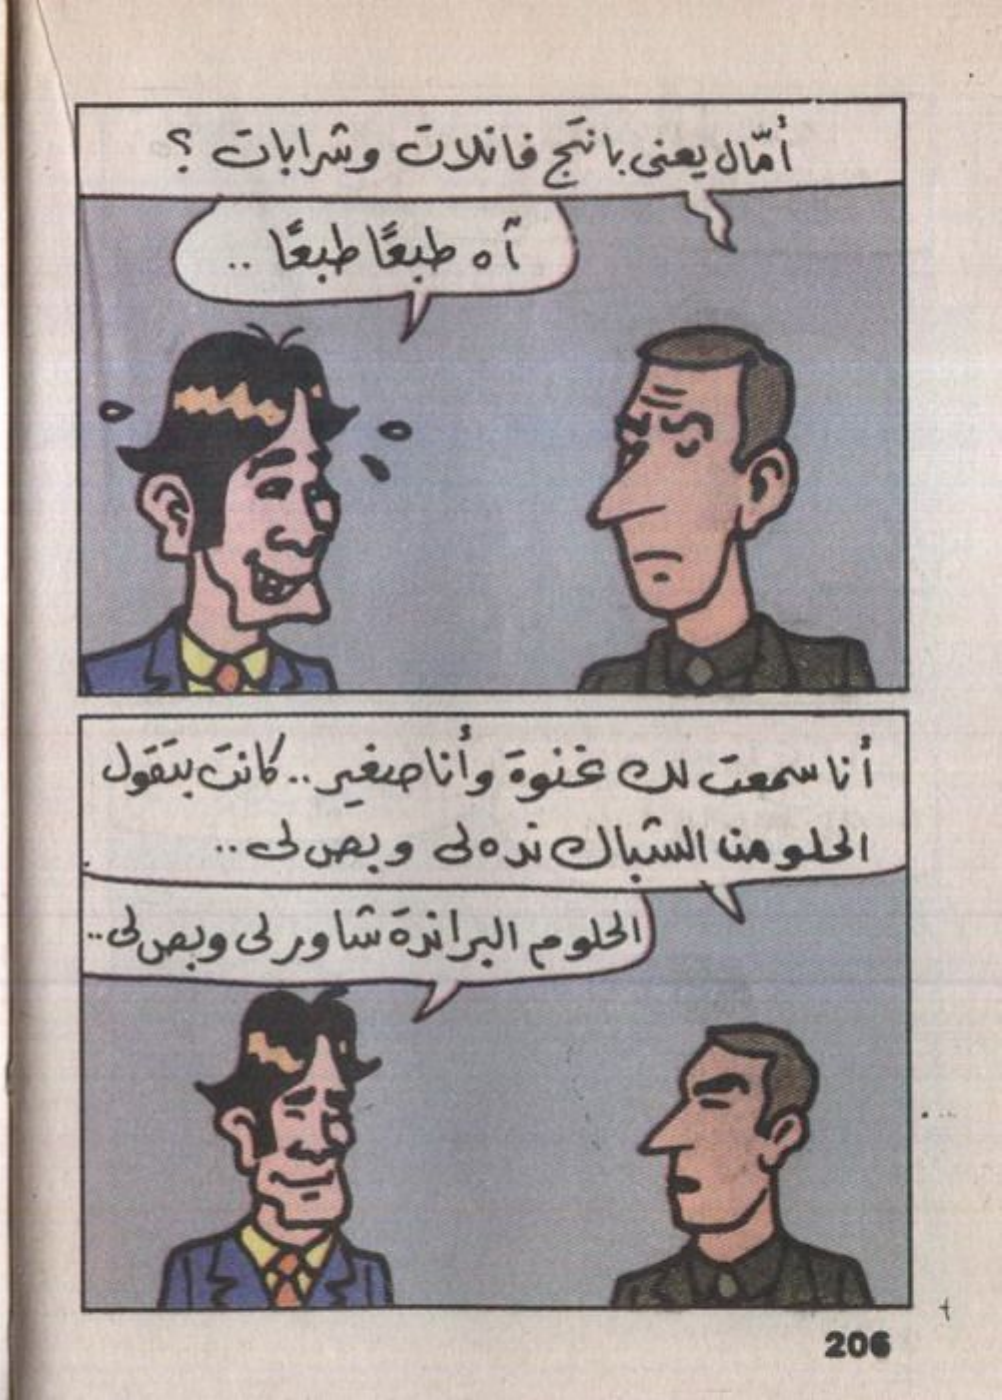 أمّال يعنى بانتج فانلات وشرابات ؟
آه طبعًا طبعًا ..
أنا سمعت لك غنوة وأنا صغير .. كانت بتقول
الحلو من الشباك نده لى وبص لى ..
الحلو م البراندة شاور لى وبص لى ..
206